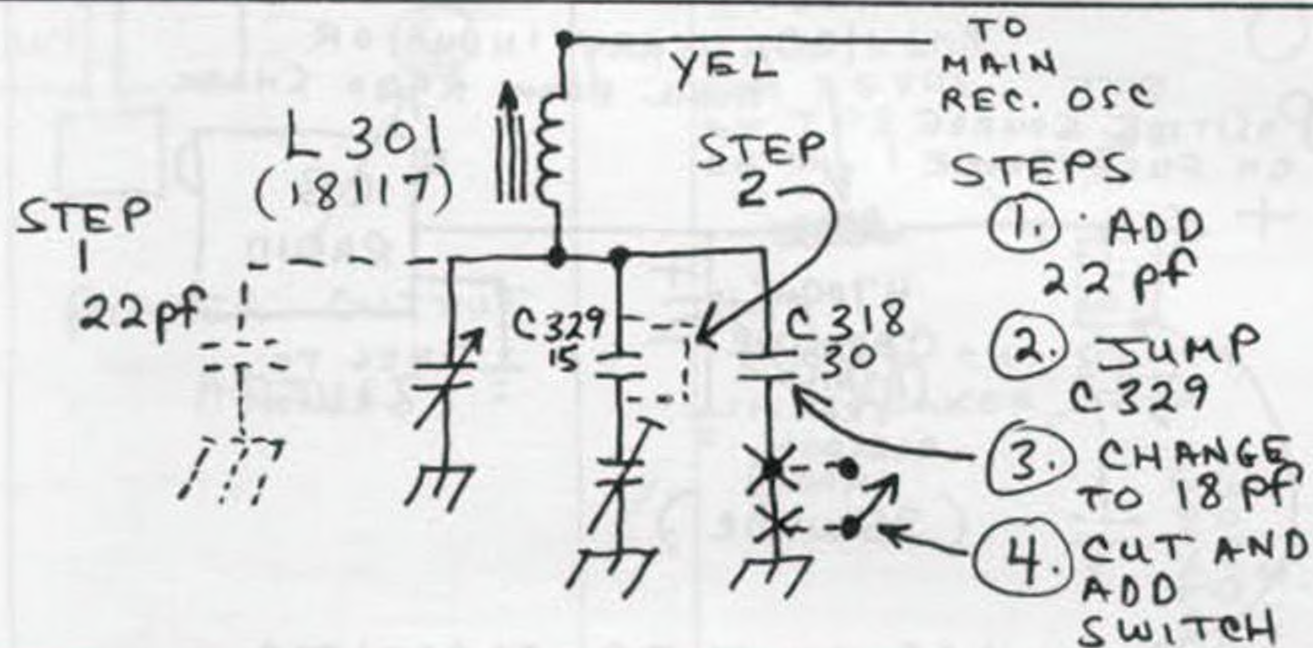 TO
MAIN
REC. OSC
YEL
L 301
(18117)
STEP
1
22pf
STEP
2
C329
15
C318
30
STEPS
1. ADD
22 pf
2. JUMP
C329
3. CHANGE
TO 18 Pf
4. CUT AND
ADD
SWITCH